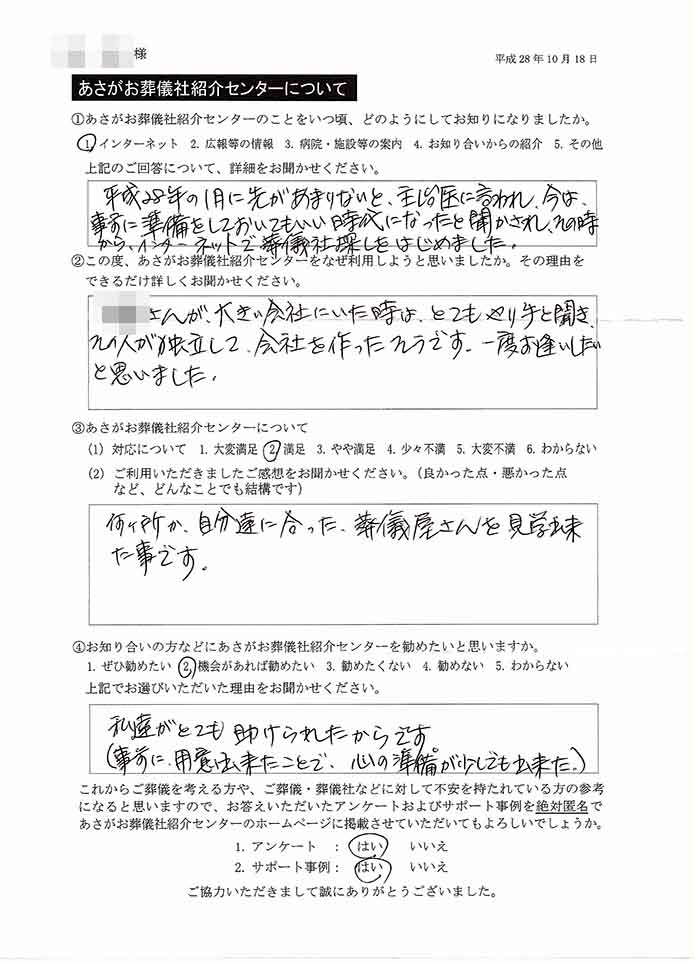 様
平成28年10月18日
あさがお葬儀社紹介センターについて
①あさがお葬儀社紹介センターのことをいつ頃、どのようにしてお知りになりましたか。
1. インターネット 2. 広報等の情報 3. 病院・施設等の案内 4. お知り合いからの紹介 5. その他
上記のご回答について、詳細をお聞かせください。
平成28年の1月に先があまりないと、主治医に言われ、今は、
事前に準備をしておいてもいい時代になったと聞かされ、その時
から、インターネットで葬儀社探しをはじめました。
②この度、あさがお葬儀社紹介センターをなぜ利用しようと思いましたか。その理由を
できるだけ詳しくお聞かせください。
さんが、大きい会社にいた時は、とてもやり手と聞き、
その人が独立して、会社を作ったそうです。一度お逢いしたい
と思いました。
③あさがお葬儀社紹介センターについて
(1) 対応について 1. 大変満足 2. 満足 3. やや満足 4. 少々不満 5. 大変不満 6. わからない
(2) ご利用いただきましたご感想をお聞かせください。（良かった点・悪かった点
など、どんなことでも結構です）
何ヶ所か、自分達に合った、葬儀屋さんを見学出来
た事です。
④お知り合いの方などにあさがお葬儀社紹介センターを勧めたいと思いますか。
1. ぜひ勧めたい 2. 機会があれば勧めたい 3. 勧めたくない 4. 勧めない 5. わからない
上記でお選びいただいた理由をお聞かせください。
私達がとても助けられたからです
(事前に、用意出来たことで、心の準備が少しでも出来た。)
これからご葬儀を考える方や、ご葬儀・葬儀社などに対して不安を持たれている方の参考
になると思いますので、お答えいただいたアンケートおよびサポート事例を絶対匿名で
あさがお葬儀社紹介センターのホームページに掲載させていただいてもよろしいでしょうか。
1. アンケート ： はい いいえ
2. サポート事例： はい いいえ
ご協力いただきまして誠にありがとうございました。